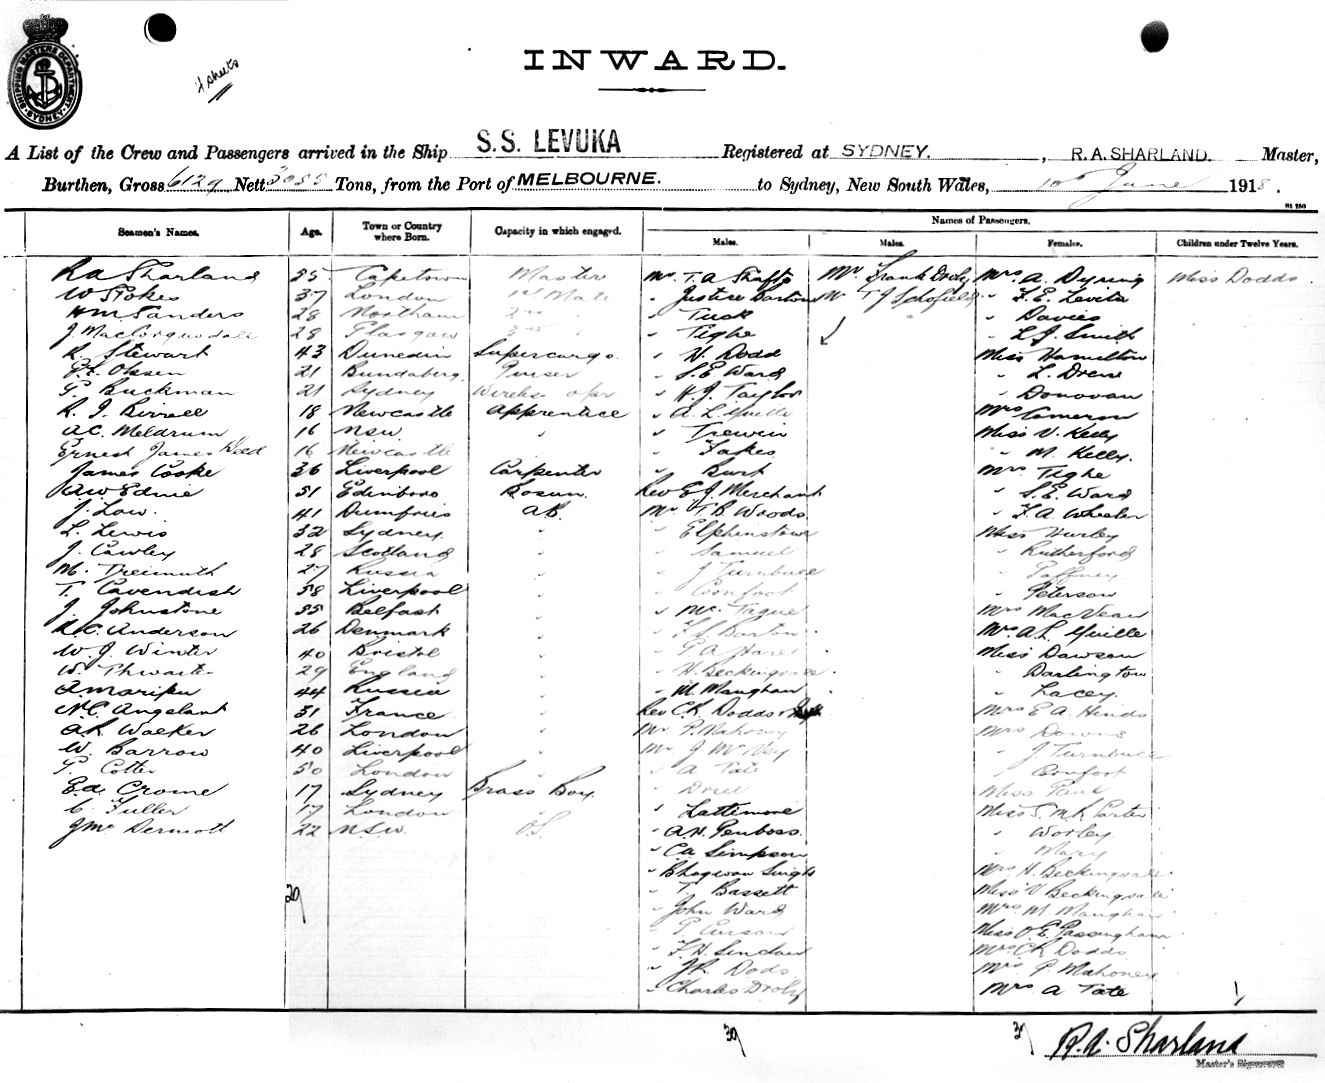 4 sheets
INWARD.
SHIPPING MASTERS DEPARTMENT. SYDNEY
A List of the Crew and Passengers arrived in the Ship S.S. LEVUKA Registered at SYDNEY. , R.A. SHARLAND. Master,
Burthen, Gross 6129 Nett 3055 Tons, from the Port of MELBOURNE. to Sydney, New South Wales, 10th June 1918.
Names of Passengers.
Seamen's Names. Age. Town or Country where Born. Capacity in which engaged. Males. Males. Females. Children under Twelve Years.
R A Sharland 55 Capetown Master Mr. T. A. Mr Frank Droly Mrs A. Miss Dodds
W Stokes 37 London 1st Mate " Justice Barton Mr T J Schofield " F. E. Levita
H M Sanders 28 Northam 2nd " " Tuck " Davies
J. MacCorquodale 28 Glasgow 3rd " " Tighe " L. J. Smith
R. Stewart 43 Dunedin Supercargo. " V. Dodd Miss Hamilton
Olssen 21 Bundaberg. Purser " S. E Ward " L. Drew
G. Buckman 21 Sydney Wireless opr. " H. J. Taylor " Donovan
R. J. Birrell 18 Newcastle Apprentice " A. L. Yuille Mrs Cameron
A C. Meldrum 16 NSW. " " Trewin Miss V. Kelly
Ernest James Wood 16 Newcastle " Fakes " M. Kelly.
James Cooke 36 Liverpool Carpenter " Burt Mrs Tighe
Edmie 51 Edinboro Bosun. Rev E. J. Merchant " S. E. Ward
J. Low. 41 Dumfries A.B. Mr. T. B. Woods " F. A Wheeler
L. Lewis 32 Sydney. " " Elphinstone Miss Hurley
J. Cawley 28 Scotland " " Samuel " Rutherford
M. Treimuth 27 Russia " " J Turnbull " Gaffney.
T. Cavendish 58 Liverpool " " Cornfoot " Peterson
J. Johnstone 55 Belfast " " McTague Mrs MacVean
A. C. Anderson 26 Denmark " " F. S. Barton Mrs A L. Yuille
W. J. Winter 40 Bristol " " G. A. Hare Miss Dawson
W. Thwaites 29 England " " H. Beckingsale " Darlington
44 Russia " " M. Maughan " Lacey.
N. C. Angelant 31 France " Rev C. H. Dodds Mrs E A. Hinds
A. L. Walker 26 London " Mr P. Mahoney Mrs Downs
W. Barrow 40 Liverpool " Mr J McVey " J Turnbull
G. Cotter 50 London " " A Tate " Cornfoot
Ed. Crome 17 Sydney Brass Boy. " Driel Miss Paul
C. Fuller 17 London " " Lattimore Miss S. M. K. Carter
J McDermott 22 N.S.W. O.S. " A. H. Penboss. " Worley
" C A Simpson " Mary
" Bhagwan Singh Mrs H. Beckingsale
29 " T. Bassett Miss V Beckingsale
" John Ward Mrs M Maughan
" G. Curson Miss O. E. Passingham
" F. H. Sinclair Mrs C H Dodds
" J. L. Dods Mrs P Mahoney
" Charles Droly Mrs A Tate 1
39 37 R. A. Sharland
Master's Signature